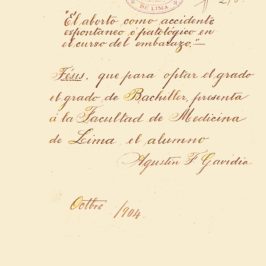 DE LIMA
"El aborto como accidente
espontaneo ó patológico en
el curso del embarazo."—
Tésis, que para optar el grado
el grado de Bachiller, presenta
á la Facultad de Medicina
de Lima el alumno
Agustin F Gavidia
Octbre /904